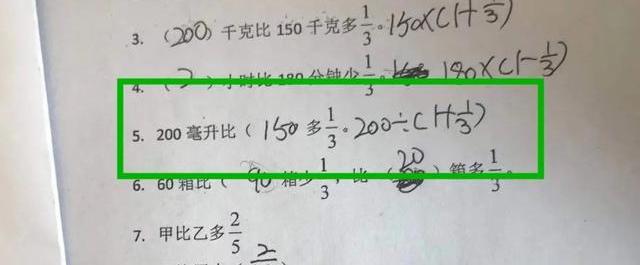 3. (200) 千克比 150 千克多 1/3。150×(1+1/3)
4. (2 ) 小时比 180 分钟少 1/3。 180×(1-1/3)
5. 200 毫升比 ( 150 多 1/3。200÷(1+1/3)
6. 60 箱比 ( 90 箱少 1/3，比 ( 20 ) 箱多 1/3。
7. 甲比乙多 2/5